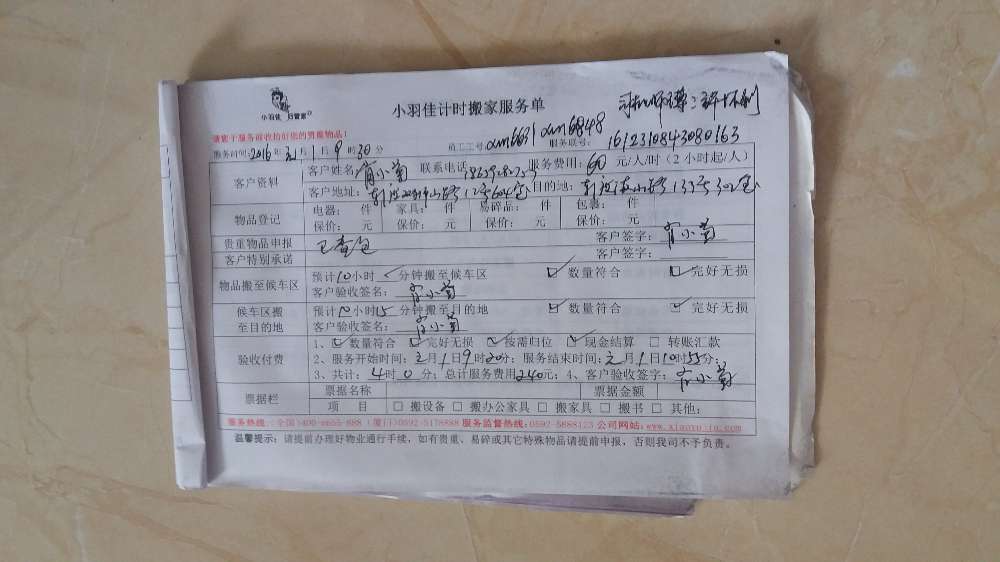 小羽佳 好管家
小羽佳计时搬家服务单
请您于服务前收拾好您的贵重物品!
服务时间:2016年元月1日9时30分 员工工号: xm6631 xm6848 服务联号: 1612310843080163
客户资料
客户姓名: 肖小菊 联系电话: 服务费用: 60 元/人/时(2小时起/人)
客户地址: 目的地:
物品登记
电器: 件 家具: 件 易碎品: 件 包裹: 件
保价: 元 保价: 元 保价: 元 保价: 元
贵重物品申报 已查包 客户签字: 肖小菊
客户特别承诺 客户签字:
物品搬至候车区
预计10小时 分钟搬至候车区 ☑数量符合 ☑完好无损
客户验收签名: 肖小菊
候车区搬至目的地
预计 小时15分钟搬至目的地 ☑数量符合 ☑完好无损
客户验收签名: 肖小菊
验收付费
1、☑数量符合 ☑完好无损 ☑按需归位 ☑现金结算 □转账汇款
2、服务开始时间:元月1日9时20分; 服务结束时间:元月1日10时55分;
3、共计:4时0分; 总计服务费用240元; 4、客户验收签字: 肖小菊
票据栏
票据名称 票据金额
项 目 □搬设备 □搬办公家具 □搬家具 □搬书 □其他:
服务热线:(全国)400-6655-888 (厦门)0592-5178888 服务监督热线:0592-5888123 公司网站:www.xiaoyujia.com
温馨提示:请提前办理好物业通行手续,如有贵重、易碎或其它特殊物品请提前申报,否则我司不予负责。